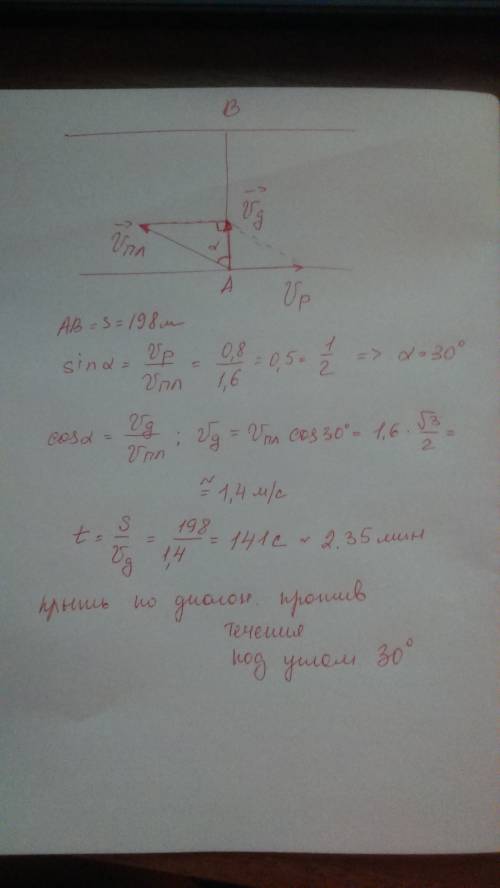 B
v⃗д
v⃗пл
α
A
vр
AB = S = 198 м
sinα = vр/vпл = 0,8/1,6 = 0,5 = 1/2 => α = 30°
cosα = vд/vпл ; vд = vпл cos30° = 1,6 · √3/2 =
≈ 1,4 м/с
t = S/vд = 198/1,4 = 141с ≈ 2.35 мин
по диагон. против
течения
под углом 30°